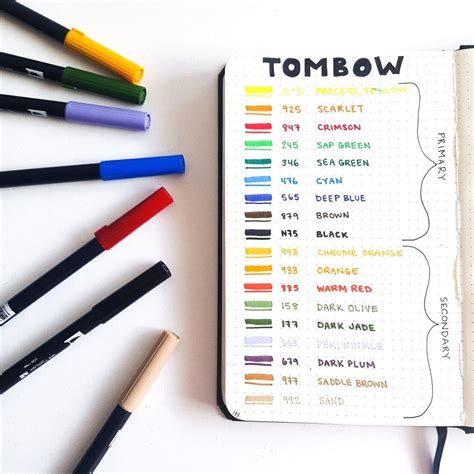 TOMBOW
PROCESS YELLOW
925 SCARLET
847 CRIMSON
245 SAP GREEN
346 SEA GREEN
476 CYAN
565 DEEP BLUE
879 BROWN
N75 BLACK
PRIMARY
993 CHROME ORANGE
933 ORANGE
885 WARM RED
158 DARK OLIVE
177 DARK JADE
PERIWINKLE
679 DARK PLUM
977 SADDLE BROWN
992 SAND
SECONDARY